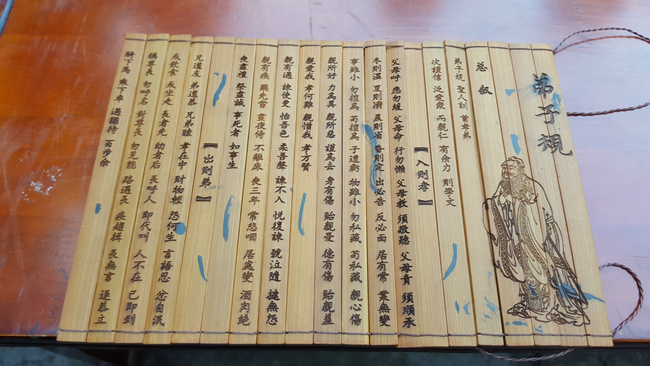 弟子規
總叙
弟子規 聖人訓 首孝弟
次謹信 泛愛眾 而親仁 有余力 則學文
【入則孝】
父母呼 應勿緩 父母命 行勿懶 父母教 須敬聽 父母責 須順承
冬則溫 夏則凊 晨則省 昏則定 出必告 反必面 居有常 業無變
事雖小 勿擅為 苟擅為 子道虧 物雖小 勿私藏 苟私藏 親心傷
親所好 力為具 親所惡 謹為去 身有傷 貽親憂 德有傷 貽親羞
親愛我 孝何難 親憎我 孝方賢
親有過 諫使更 怡吾色 柔吾聲 諫不入 悅復諫 號泣隨 撻無怨
親有疾 藥先嘗 晝夜侍 不離床 喪三年 常悲咽 居處變 酒肉絕
喪盡禮 祭盡誠 事死者 如事生
【出則弟】
兄道友 弟道恭 兄弟睦 孝在中 財物輕 怨何生 言語忍 忿自泯
或飲食 或坐走 長者先 幼者后 長呼人 即代叫 人不在 己即到
稱尊長 勿呼名 對尊長 勿見能 路遇長 疾趨揖 長無言 退恭立
騎下馬 乘下車 過猶待 百步余